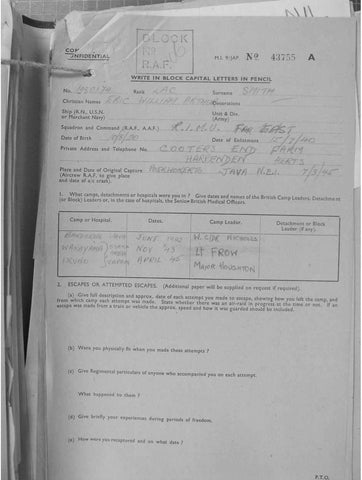 CONFIDENTIAL
BLOCK
R.A.F.
M.I. 9/JAP. No 43755 A
WRITE IN BLOCK CAPITAL LETTERS IN PENCIL
No. Rank LAC Surname SMITH
Christian Names ERIC WILLIAM Decorations
Ship (R.N., U.S.N. or Merchant Navy) Unit & Div. (Army)
Squadron and Command (R.A.F., A.A.F.) R.I.M.U. FAR EAST
Date of Birth Date of Enlistment
Private Address and Telephone No. COOTERS END FARM
HARPENDEN HERTS
Place and Date of Original Capture JAVA N.E.I.
(Aircrew R.A.F. to give place and date of a/c crash).
1. What camps, detachments or hospitals were you in? Give dates and names of the British Camp Leaders, Detachment or (Block) Leaders or, in case of hospitals, the Senior British Medical Officers.
Camp or Hospital. Dates. Camp Leader. Detachment or Block Leader (if any).
JAVA JUNE W. CDR NICHOLS
WAKAYAMA NOV 43 LT FROW
APRIL 45 MAJOR HOUGHTON
2. ESCAPES OR ATTEMPTED ESCAPES. (Additional paper will be supplied on request if required).
(a) Give full description and approx. date of each attempt you made to escape, showing how you left the camp, and
from which camp each attempt was made. State whether there was an air-raid in progress at the time or not. If an
escape was made from a train or vehicle the approx. speed and how it was guarded should be included.
(b) Were you physically fit when you made these attempts?
(c) Give Regimental particulars of anyone who accompanied you on each attempt.
What happened to them?
(d) Give briefly your experiences during periods of freedom.
(e) How were you recaptured and on what date?
P.T.O.